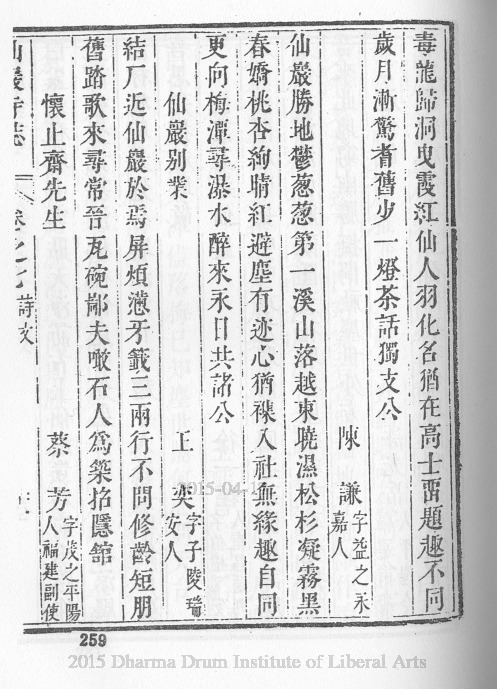 毒龍歸洞曳霞紅仙人羽化名猶在高士畱題趣不同
歲月漸驚耆舊少一燈茶話獨支公
陳　謙字益之永嘉人
仙巖勝地鬱葱葱第一溪山落越東曉濕松杉凝霧黑
春嬌桃杏絢晴紅避塵有迹心猶襍入社無緣趣自同
更向梅潭尋瀑水醉來永日共諸公
仙巖别業　王　奕字子陵瑞安人
結厂近仙巖於焉屏煩懣牙籤三兩行不問修齡短朋
舊踏歌來尋常晉瓦碗鄙夫噉石人為築招隱舘
懷止齋先生　蔡　芳字茂之平陽人福建副使
仙巖寺志　卷之七　詩文
259
2015-04-
2015 Dharma Drum Institute of Liberal Arts